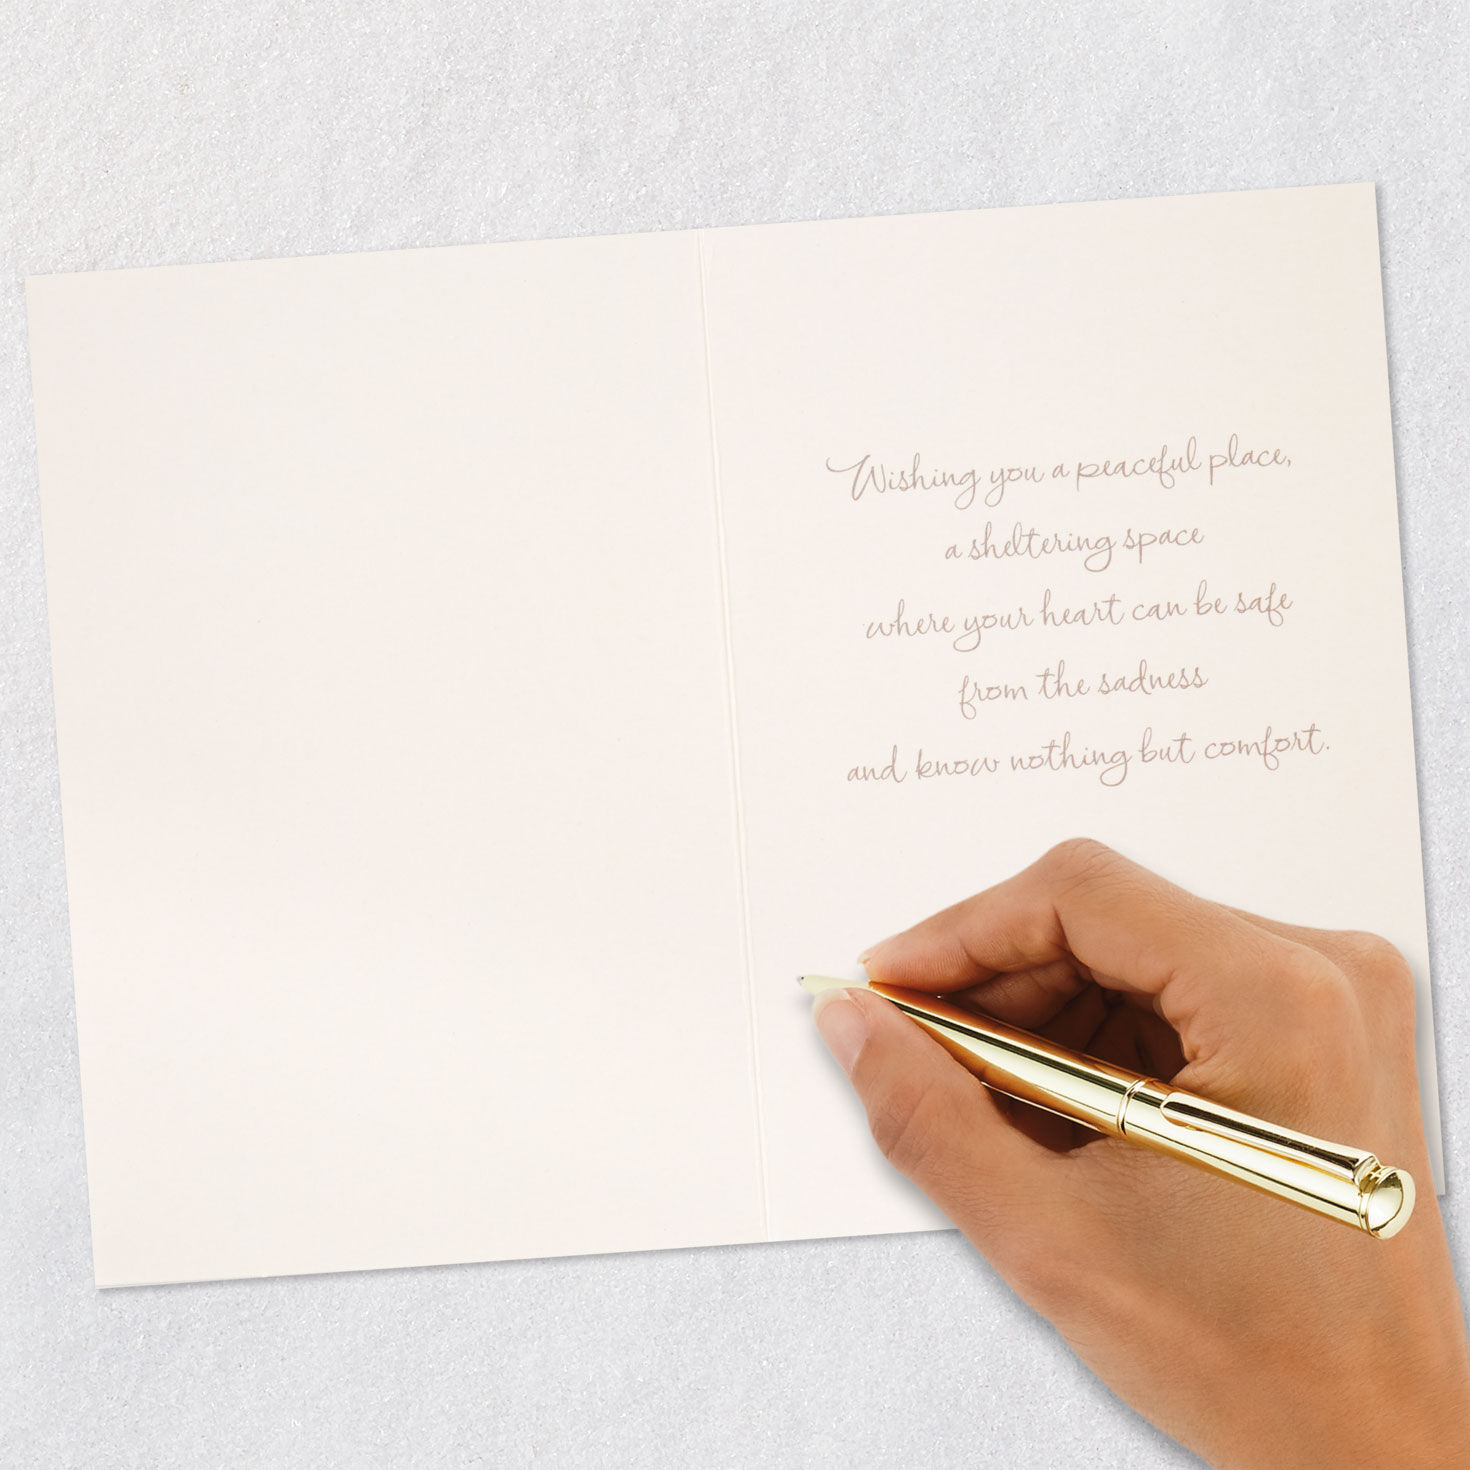 Wishing you a peaceful place,
a sheltering space
where your heart can be safe
from the sadness
and know nothing but comfort.